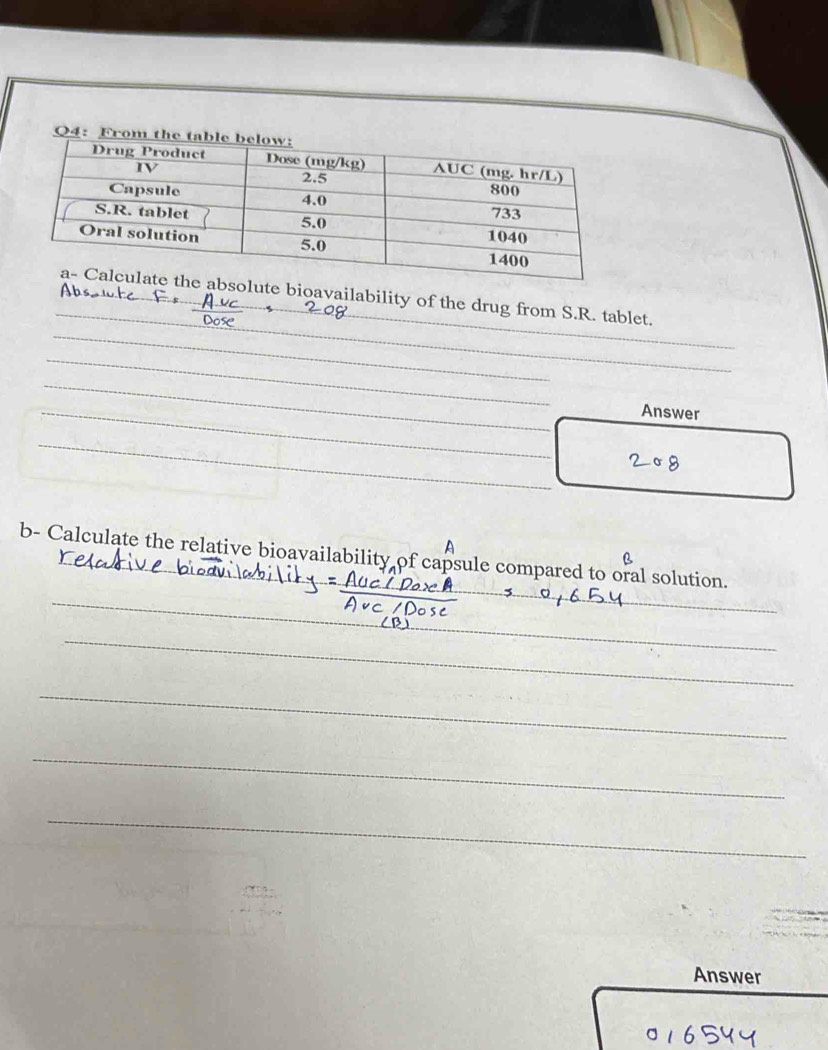 Q4: From the table below:
Drug Product Dose (mg/kg) AUC (mg. hr/L)
IV 2.5 800
Capsule 4.0 733
S.R. tablet 5.0 1040
Oral solution 5.0 1400
a- Calculate the absolute bioavailability of the drug from S.R. tablet.
Absolute F = AUC / Dose = 208
Answer
208
A B
b- Calculate the relative bioavailability of capsule compared to oral solution.
relative bioavilability = AUC / Dose A = 0,654
AUC / Dose
(B)
Answer
0,6544